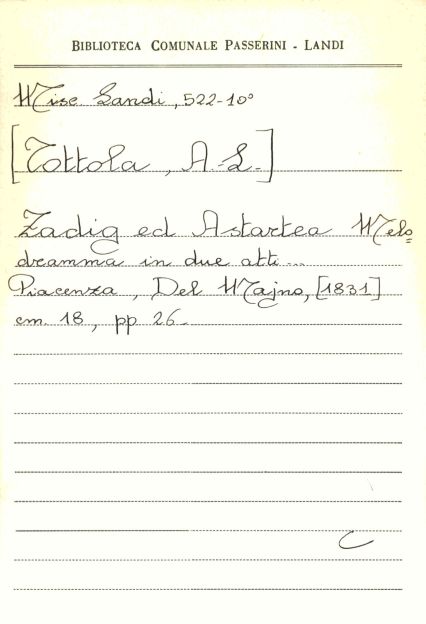 BIBLIOTECA COMUNALE PASSERINI - LANDI
Misc. Landi, 522-10°
[Tottola, A. L.]
Zadig ed Astartea Melo=
dramma in due atti...
Piacenza, Del Majno, [1831]
cm. 18, pp 26.
C